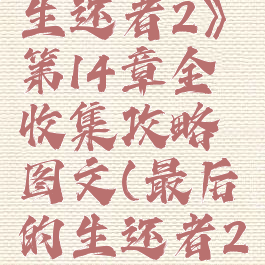 生还者2》
第14章全
收集攻略
图文(最后
的生还者2